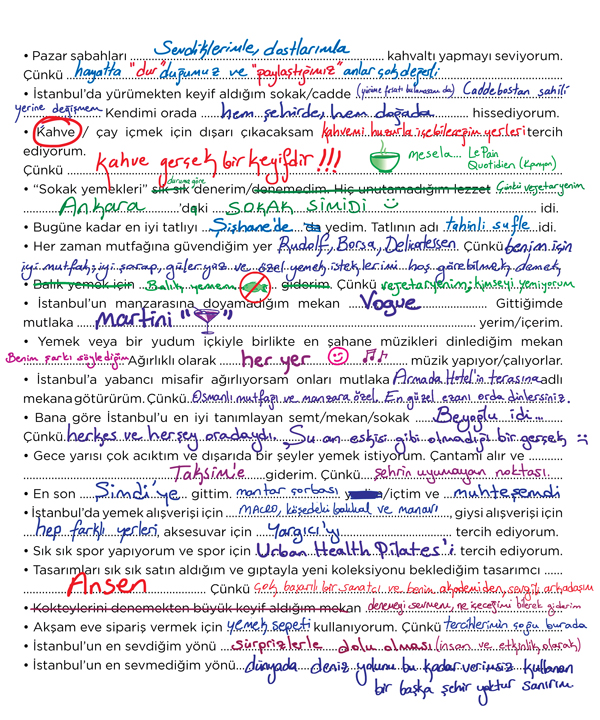 • Pazar sabahları Sevdiklerimle, dostlarımla kahvaltı yapmayı seviyorum.
Çünkü hayatta "dur"duğumuz ve "paylaştığımız" anlar çok değerli
• İstanbul'da yürümekten keyif aldığım sokak/cadde (yürüme fırsatı bulamasam da) Caddebostan sahili
yerine değişmem Kendimi orada hem şehirde, hem doğada hissediyorum.
• Kahve / çay içmek için dışarı çıkacaksam kahvemi huzurla içebileceğim yerleri tercih
ediyorum.
Çünkü kahve gerçek bir keyifdir !!! mesela... Le Pain
Quotidien (Kanyon)
• "Sokak yemekleri" sık sık duruma göre denerim/denemedim. Hiç unutamadığım lezzet Çünkü vejetaryenim
Ankara 'daki SOKAK SİMİDİ idi.
• Bugüne kadar en iyi tatlıyı Şişhane'de da yedim. Tatlının adı tahinli sufle idi.
• Her zaman mutfağına güvendiğim yer Rudolf, Borsa, Delikatessen. Çünkü benim için
iyi mutfak; iyi şarap, güler yüz ve özel yemek isteklerimi hoş görebilmek demek
• Balık yemek için Balık yemem giderim. Çünkü vejetaryenim; kimseyi yemiyorum
• İstanbul'un manzarasına doyamadığım mekan Vogue Gittiğimde
mutlaka martini " " yerim/içerim.
• Yemek veya bir yudum içkiyle birlikte en şahane müzikleri dinlediğim mekan
Benim şarkı söylediğim Ağırlıklı olarak her yer müzik yapıyor/çalıyorlar.
• İstanbul'a yabancı misafir ağırlıyorsam onları mutlaka Armada Hotel'in terasına adlı
mekana götürürüm. Çünkü Osmanlı mutfağı ve manzara özel. En güzel ezanı orda dinlersiniz.
• Bana göre İstanbul'u en iyi tanımlayan semt/mekan/sokak Beyoğlu idi...
Çünkü herkes ve herşey oradaydı. Şu an eskisi gibi olmadığı bir gerçek
• Gece yarısı çok acıktım ve dışarıda bir şeyler yemek istiyorum. Çantamı alır ve
Taksim'e giderim. Çünkü şehrin uyumayan noktası.
• En son Şimdi'ye gittim. mantar çorbası y /içtim ve muhteşemdi
• İstanbul'da yemek alışverişi için MACRO, köşedeki bakkal ve manavı, giysi alışverişi için
hep farklı yerleri, aksesuvar için Yargıcı'yı tercih ediyorum.
• Sık sık spor yapıyorum ve spor için Urban Health Pilates'i tercih ediyorum.
• Tasarımları sık sık satın aldığım ve gıptayla yeni koleksiyonu beklediğim tasarımcı
Ansen Çünkü çok başarılı bir sanatçı ve benim akademiden, sevgili arkadaşım
• Kokteylerini denemekten büyük keyif aldığım mekan denemeyi sevmem, ne içeceğimi bilerek giderim
• Akşam eve sipariş vermek için yemek sepeti kullanıyorum. Çünkü tercihlerimin çoğu burada
• İstanbul'un en sevdiğim yönü sürprizlerle dolu olması (insan ve etkinlik olarak)
• İstanbul'un en sevmediğim yönü dünyada deniz yolunu bu kadar verimsiz kullanan
bir başka şehir yoktur sanırım